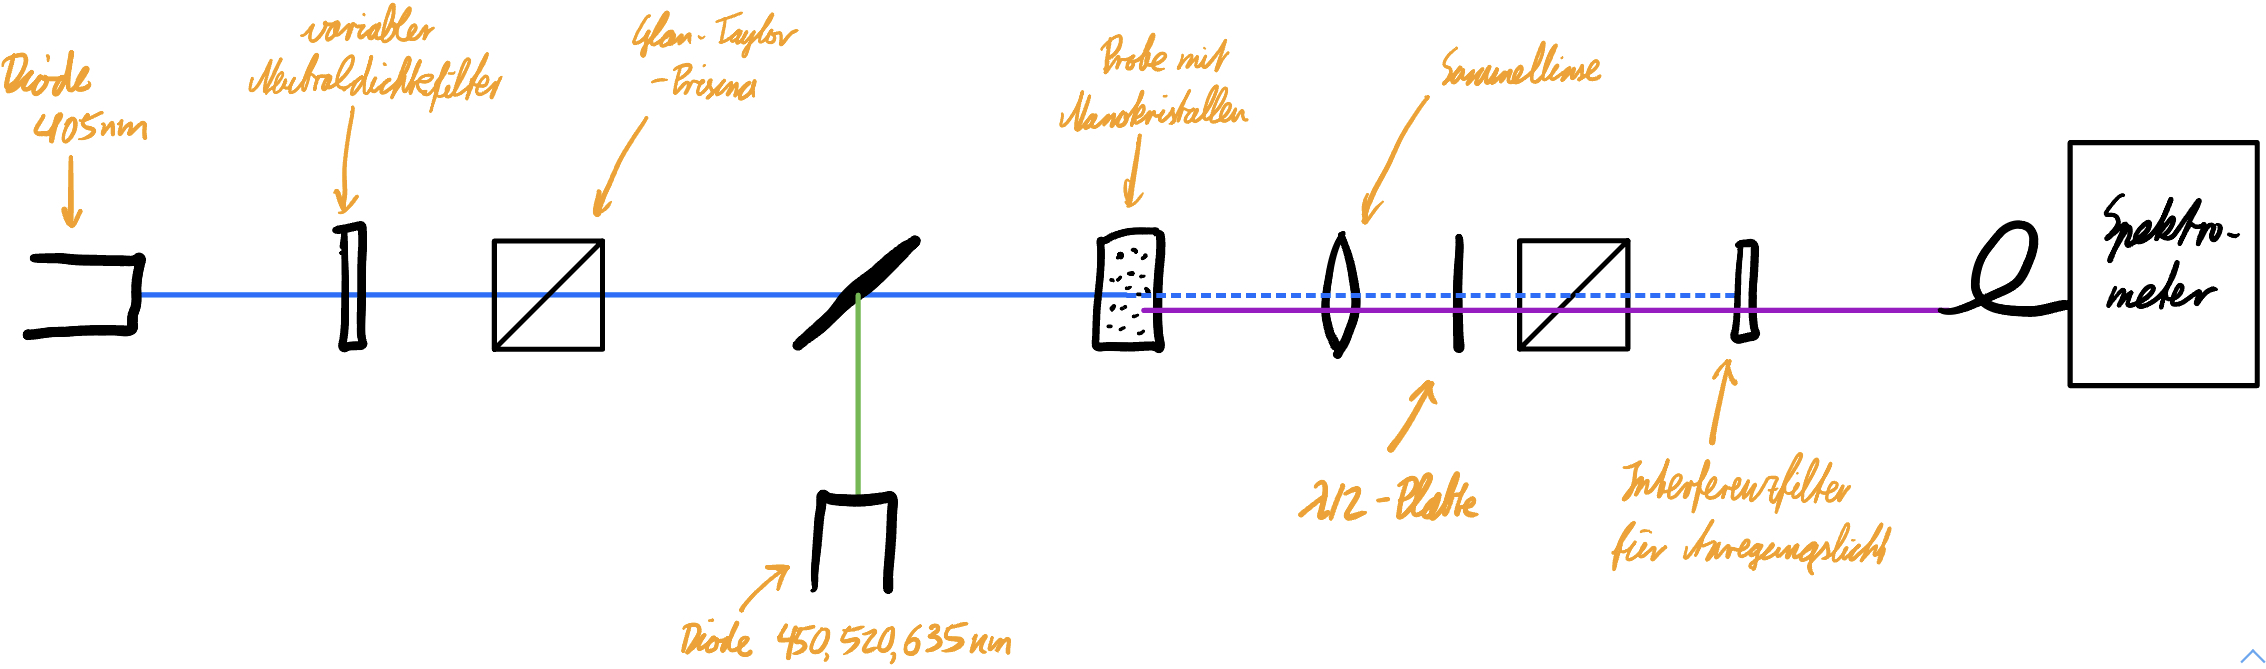 Diode
405nm
variabler
Neutraldichtefilter
Glan-Taylor
-Prisma
Probe mit
Nanokristallen
Sammellinse
Spektro-
meter
λ/2-Platte
Interferenzfilter
für Anregungslicht
Diode 450, 520, 635nm